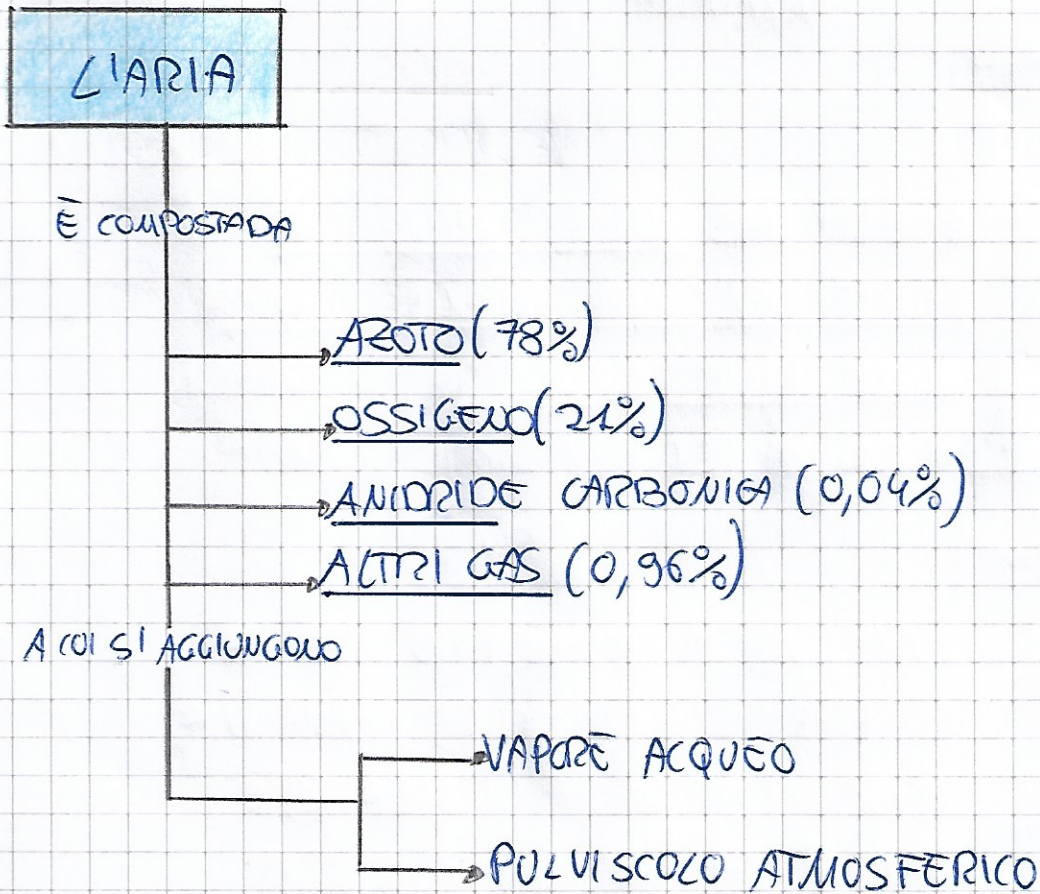 L'ARIA
È COMPOSTA DA
AZOTO (78%)
OSSIGENO (21%)
ANIDRIDE CARBONICA (0,04%)
ALTRI GAS (0,96%)
A CUI SI AGGIUNGONO
VAPORE ACQUEO
PULVISCOLO ATMOSFERICO